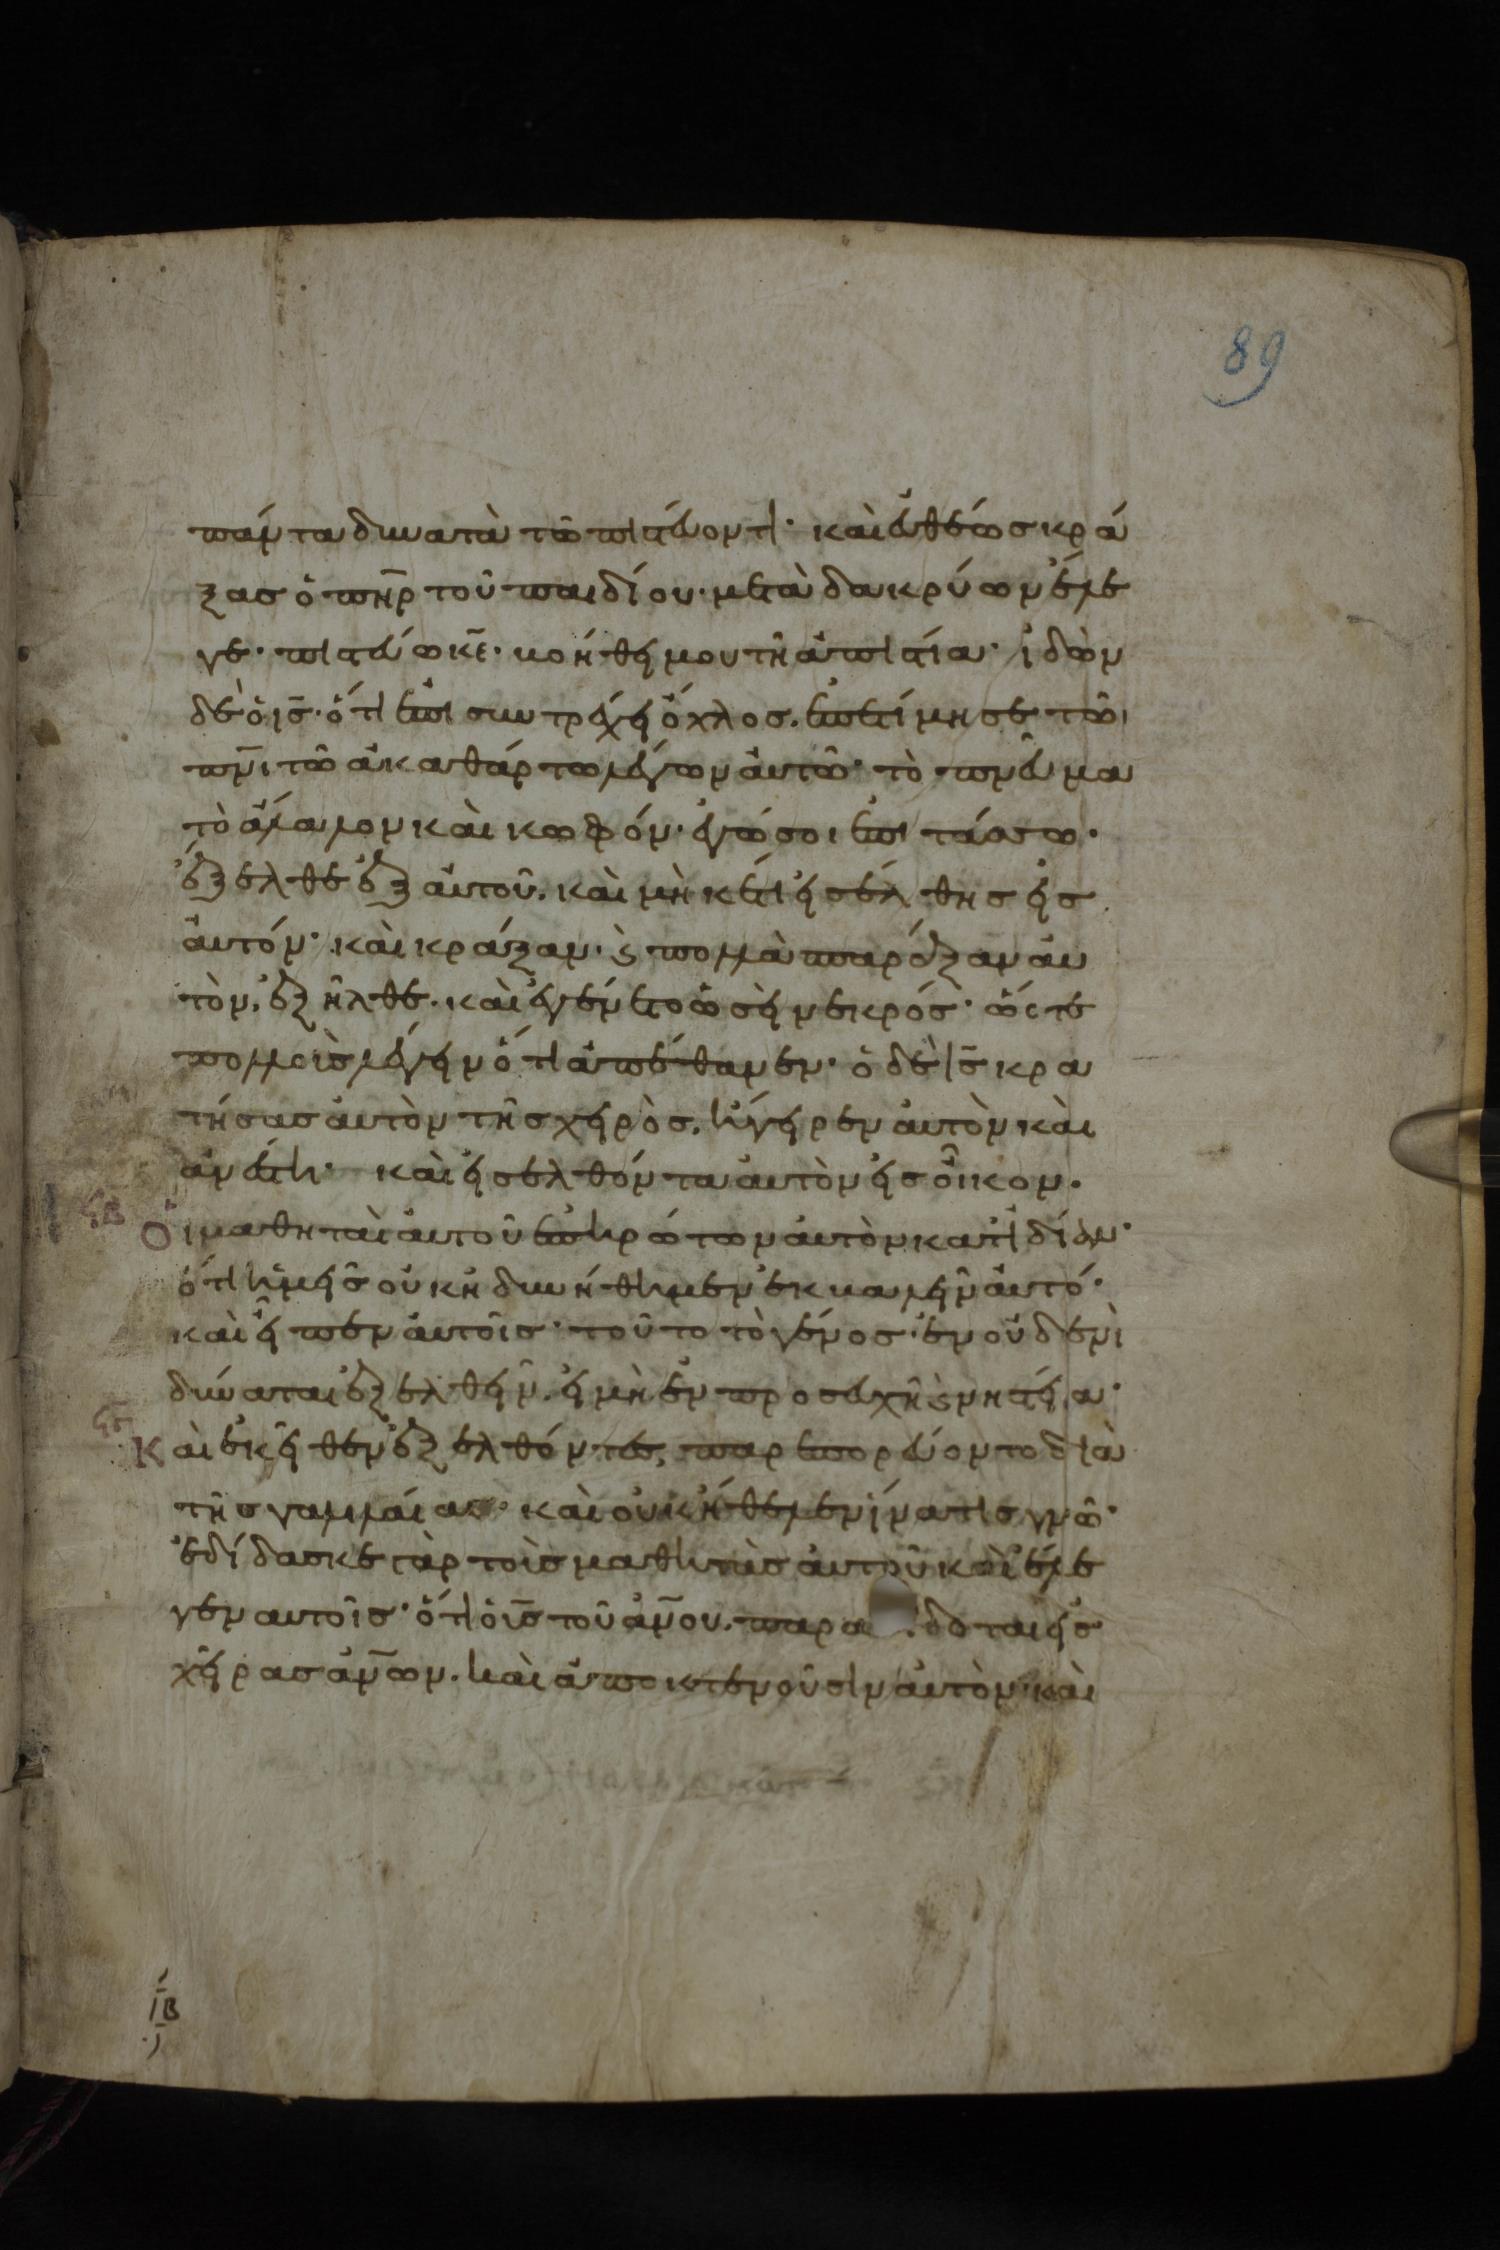 89
πάντα δυνατὰ τῶ πιστεύοντι· καὶ εὐθέως κρά
ξας ὁ πη̅ρ τοῦ παιδίου· μετὰ δακρύων ἔλε
γε· πιστεύω κ̅ε̅· βοήθει μου τῆ ἀπιστία· ἰδὼν
δὲ ὁ ι̅ς̅· ὅτι ἐπισυντρέχει ὄχλος. ἐπετίμησε τῶ
πν̅ι τῶ ἀκαθάρτω λέγων αὐτῶ· τὸ πνεῦμα
τὸ ἄλαλον καὶ κωφόν· ἐγώ σοι ἐπιτάσσω·
ἔξελθε ἐξ αὐτοῦ. καὶ μὴκέτι εἰσέλθης εἰς
αὐτόν· καὶ κράξαν· ϛ̀ πολλὰ σπαράξαν αὐ
τὸν, ἐξῆλθε· καὶ ἐγένετο ὡσεὶ νεκρός· ὥστε
πολλοὺς λέγειν ὅτι ἀπέθανεν· ὁ δὲ ι̅ς̅ κρα
τήσας αὐτὸν τῆς χειρὸς, ἤγειρεν αὐτὸν καὶ
ἀνέστη· καὶ εἰσελθόντα αὐτὸν εἰς οἶκον·
Οἱ μαθηταὶ αὐτοῦ ἐπηρώτων αὐτὸν κατιδίαν·
ὅτι ἡμεῖς οὐκ ἠδυνήθημεν ἐκβαλεῖν αὐτό·
καὶ εἶπεν αὐτοῖς· τοῦτο τὸ γένος· ἐν οὐδενὶ
δύναται ἐξελθεῖν. εἰ μὴ ἐν προσευχῆ ϛ̀ νηστεία·
Καὶ ἐκεῖθεν ἐξελθόντες, παρεπορεύοντο διὰ
τῆς γαλιλαίας· καὶ οὐκ ἤθελεν ἵνα τὶς γνῶ·
ἐδίδασκε γὰρ τοὺς μαθητὰς αὐτοῦ καὶ ἔλε
γεν αυτοῖς· ὅτι ὁ υ̅ς̅ τοῦ ἀν̅ου. παρα δοται εἰς
χεῖρας ἀν̅ων. καὶ ἀποκτενοῦσιν αὐτὸν· καὶ
ιβ